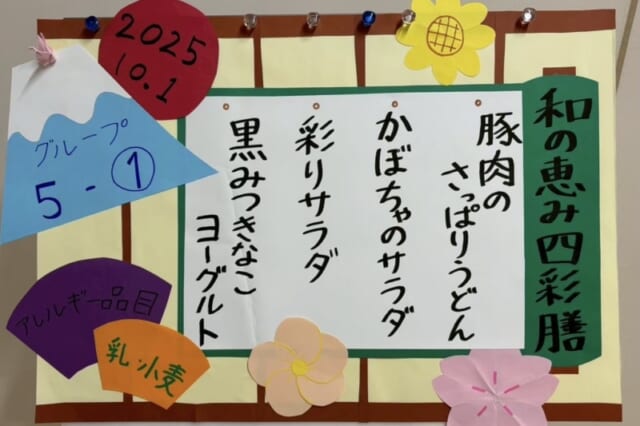 2025
10.1
グループ
5-①
和の恵み四彩膳
豚肉の
さっぱりうどん
かぼちゃのサラダ
彩りサラダ
黒みつきなこ
ヨーグルト
アレルギー品目
乳・小麦